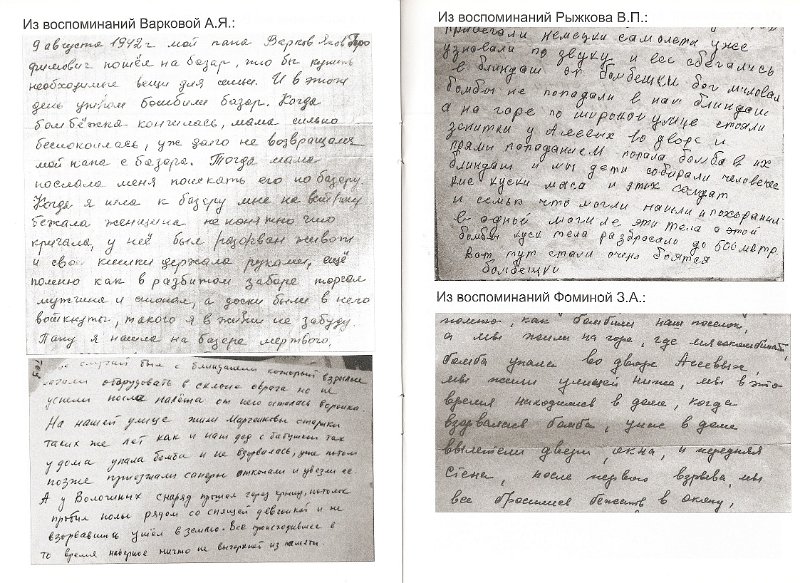 Из воспоминаний Варковой А.Я.:
9 августа 1942 г мой папа Варков Яков
фимович пошёл на базар, что бы купить
необходимые вещи для семьи. И в этот
день утром бомбили базар. Когда
бомбёжка кончилась, мама сильно
беспокоилась, уже долго не возвращался
мой папа с базара. Тогда мама
послала меня поискать его по базару
Когда я шла к базару мне на встречу
бежала женщина не понятно что
кричала, у неё был разорван живот
и свои кишки держала руками, ещё
помню как в разбитом заборе торчал
мужчина и стонал, а доски были в него
воткнуты, такого я в жизни не забуду.
Папу я нашла на базаре мёртвого.
случай был с блиндашем который взрослые
хотели оборудовать в склоне оврага но не
успели после налёта от него осталась воронка
На нашей улице жили Марченковы старики
таких же лет как и наш дед с бабушкой так
у дома упала бомба и не взорвалась, уже потом
позже приезжали саперы откопали и увезли её
А у Волошиных снаряд прошел через крышу, потолок
пробил полы рядом со спящей девочкой и не
взорвавшись ушел в землю. Все происходившее в
то время наверное ничто не вычеркнет из памяти.
Из воспоминаний Рыжкова В.П.:
прилетали немецки самолеты уже
узнавали по звуку и все сбегались
в блиндаш от бомбешки бог миловал
бомбы не попадали в наш блиндаш
а на горе по широкой улице стояли
зенитки у Агеевых во дворе и
прамы попаданием попала бомба в их
блиндаш и мы дети собирали человечес
кие куски мяса и этих солдат
и семьи что могли нашли и похаранил
в одной могиле эти тела а этой
бомбы куси тела разбросало до 600 метр
Вот тут стали очень боятся
бомбешки
Из воспоминаний Фоминой З.А.:
помню, как бомбили наш поселок,
а мы жили на горе, где
бомба упала во дворе Агеевых,
мы жили улицей ниже, мы в это
время находились в доме, когда
взорвалась бомба, у нас в доме
вылетели двери, окна, и передняя
стена, после первого взрыва, мы
все бросились бежать в окопы,